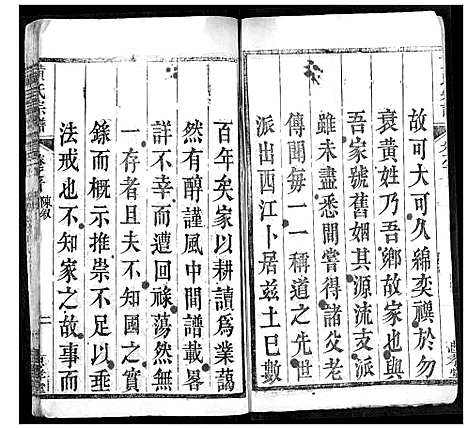 故可大可久綿奕禩於勿
衰黃姓乃吾鄉故家也與
吾家號舊姻其源流支派
雖未盡悉間嘗得諸父老
傳聞每一一稱道之先世
派出西江卜居茲土已數
百年矣家以耕讀爲業藹
然有醇謹風中間譜載畧
詳不幸而遭回祿蕩然無
一存者且夫不知國之實
錄而概示推崇不足以垂
法戒也不知家之故事而
氏宗譜
陳敘
二